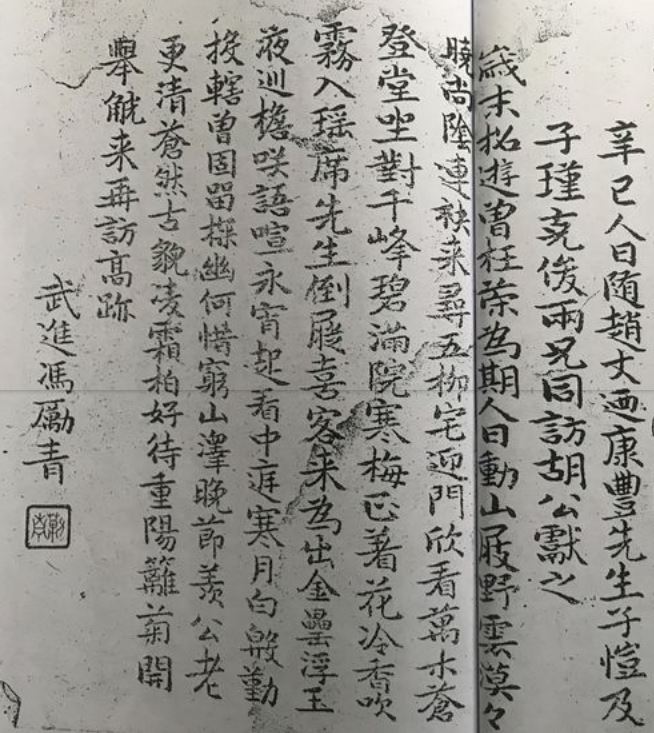 辛巳人日随趙丈迺康豐先生子愷及
子瑾克俊兩兄同訪胡公獻之
歲末招遊曾枉柬為期人日動山屐野雲漠々
曉尚陰連袂来尋五柳宅迎門欣看萬木蒼
登堂坐對千峰碧滿院寒梅正著花冷香吹
霧入瑶席先生倒屐喜客来為出金罍浮玉
液巡檐咲語喧永宵起看中庭寒月白殷勤
投轄曾固留探幽何惜窮山澤晚節羨公老
更清蒼然古貌凌霜柏好待重陽籬菊開
舉觥来再訪高跡
武進馮勵青